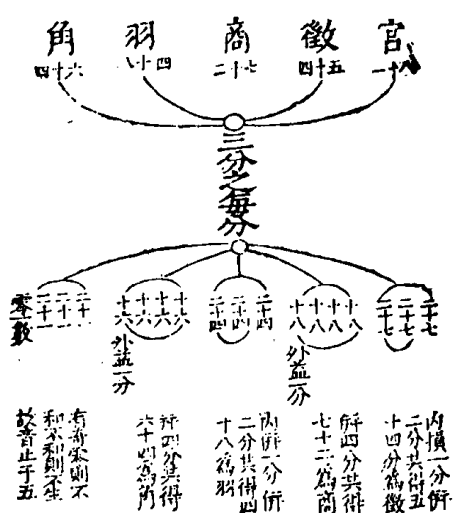 宮
八十一
徵
五十四
商
七十二
羽
四十八
角
六十四
三分之每分
二十七
二十七
二十七
十八
十八
十八
十八
外益一分
二十四
二十四
二十四
十六
十六
十六
十六
外益一分
二十一
二十一
二十一
零一數
內損一分併
二分共得五
十四分為徵
四分共得
七十二為商
內併一分併
二分共得四
十八為羽
四分共得
六十四為角
有奇零則不
和不和則不生
故音止于五